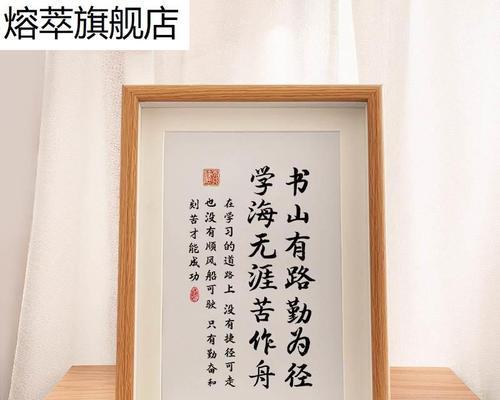 熔萃旗舰店
书山有路勤为径
学海无涯苦作舟
在学习的道路上 没有捷径可走
也没有顺风船可驶 只有勤奋和
刻苦才能成功